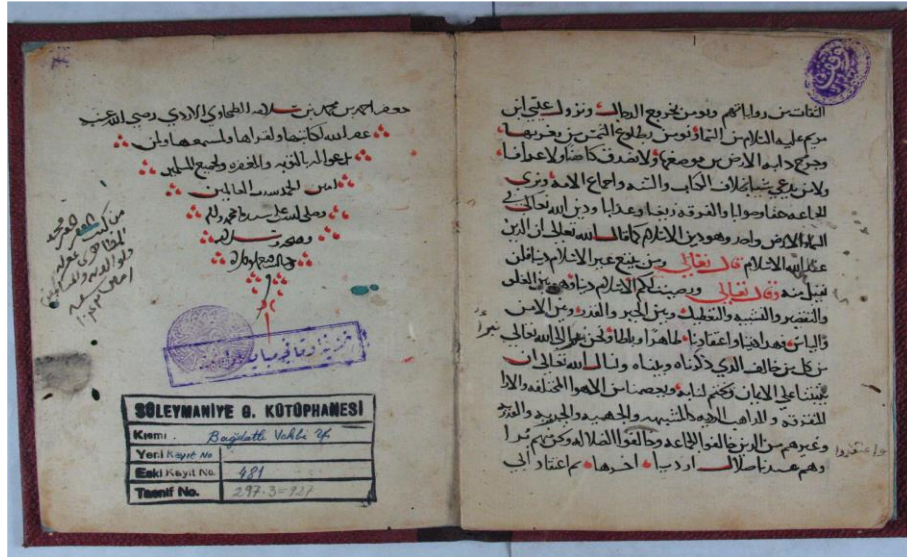 الثقات من رواياتهم ونومن بخروج الدجال ونزول عيسى ابن
مريم عليه السلام من السماء ونومن بطلوع الشمس من مغربها
وخروج دابة الارض من موضعها ولا نصدق كاهنا ولا عرافا
ولا من يدعي شيا بخلاف الكتاب والسنه واجماع الامة ونرى
الجماعه حقا وصوابا والفرقه زيغا وعذابا ودين الله تعالى في
السماء والارض واحد وهو دين الاسلام كما قال الله تعالى ان الدين
عند الله الاسلام قال تعالى ومن يبتغ غير الاسلام دينا فلن
يقبل منه وقال تعالى ورضيت لكم الاسلام دينا وهو بين الغلو
والتقصير والتشبيه والتعطيل وبين الجبر والقدر وبين الامن
والياس فهذا ديننا واعتقادنا ظاهرا وباطنا ونحن الى الله تعالى
من كل من خالف الذي ذكرناه وبيناه ونسال الله تعالى ان
يثبتنا على الايمان ويختم لنا به ويعصمنا من الاهوا المختلفه والارا
المتفرقه والمذاهب الرديه كالمشبهه والجهميه والجبريه والقدريه
وغيرهم من الذين خالفوا الجماعه وحالفوا الضلاله ونحن منهم برا
وهم عندنا ضلال اردياء اخرها تم اعتقاد ابي
جعفر احمد بن محمد بن سلامه الطحاوي الازدي رضي الله عنه
غفر الله لكاتبها ولقراها ولمستمعها ولمن
دعوا لهم بالتوبه والمغفره ولجميع المسلمين
امين الحمد لله رب العالمين
وصلى الله على سيدنا محمد واله
وصحبه وسلم
SÜLEYMANİYE G. KÜTÜPHANESİ
Kısmı: Bağdatlı Vehbi Ef.
Yeni Kayıt No.
Eski Kayıt No. 481
Tasnif No. 297.3=927